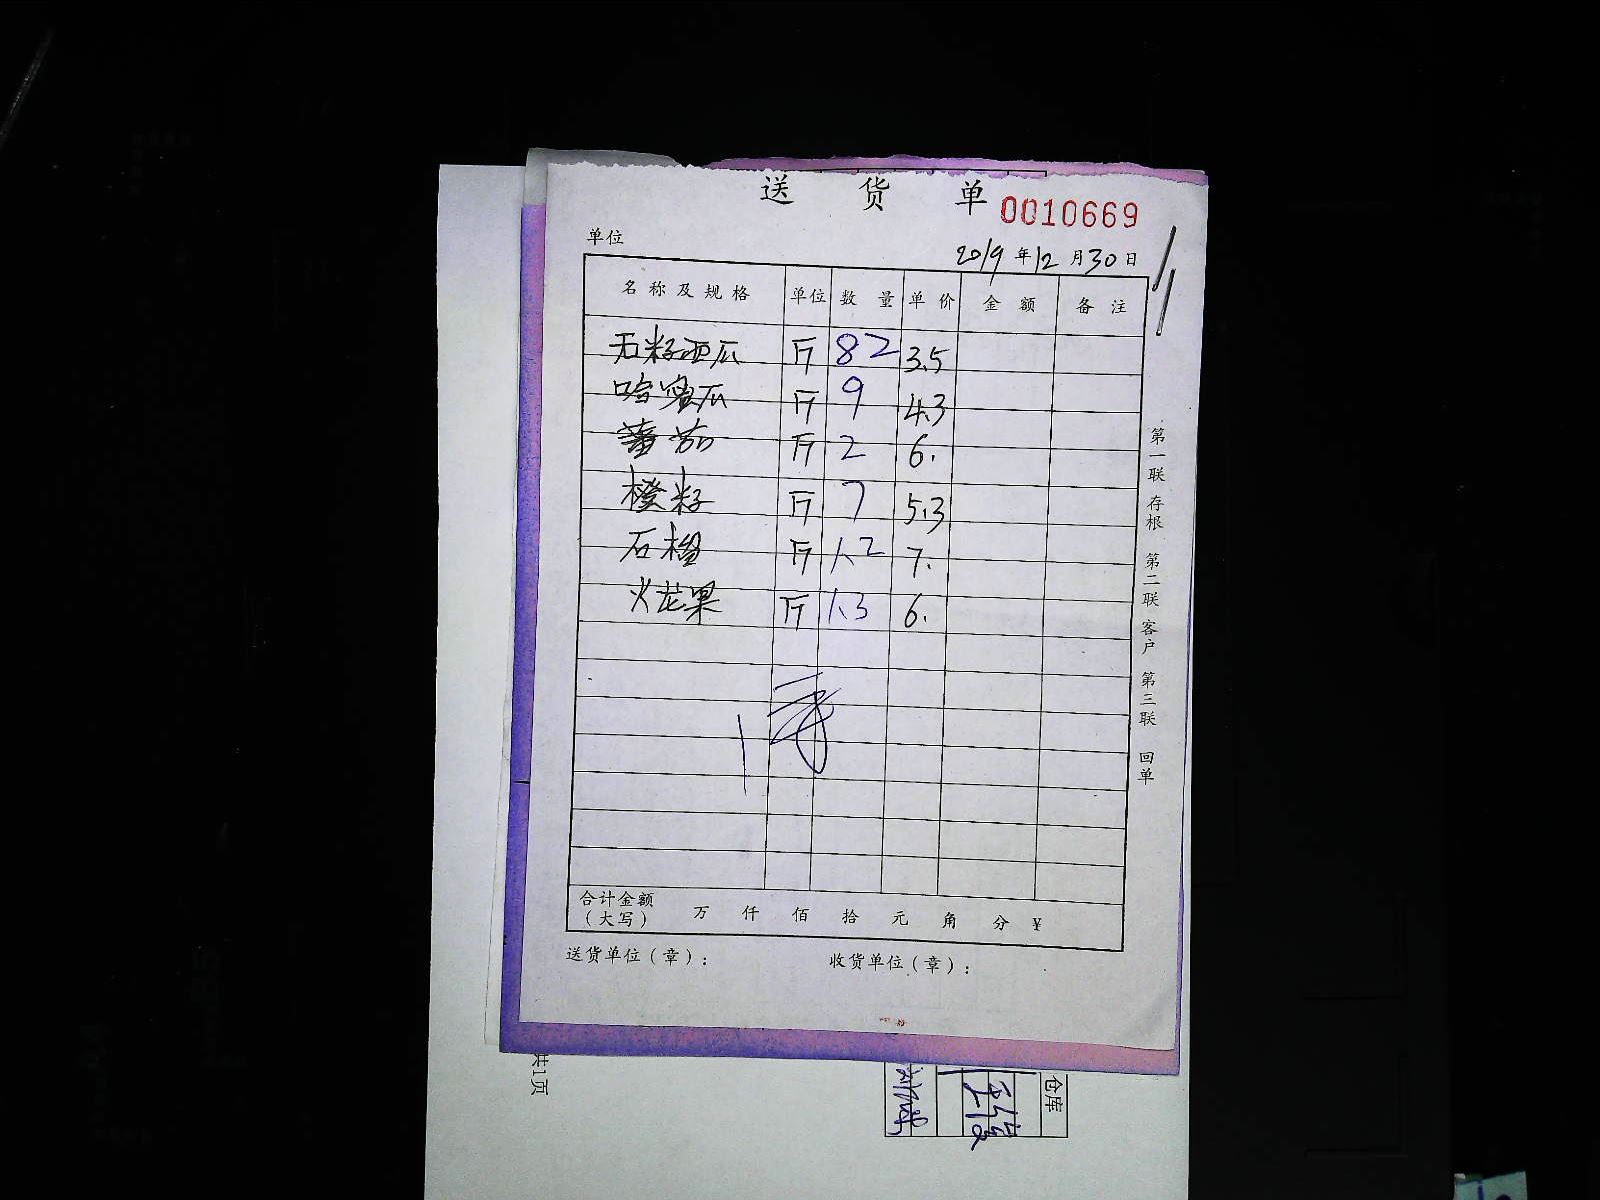 送货单 0010669
单位 2019年12月30日
名称及规格 单位 数量 单价 金额 备注
无籽西瓜 斤 82 3.5
哈蜜瓜 斤 9 4.3
蕃茄 斤 2 6.
橙籽 斤 7 5.3
石榴 斤 1.2 7.
火龙果 斤 1.3 6.
第一联 存根 第二联 客户 第三联 回单
合计金额
(大写) 万 仟 佰 拾 元 角 分 ¥
送货单位(章): 收货单位(章):
共1页
仓库